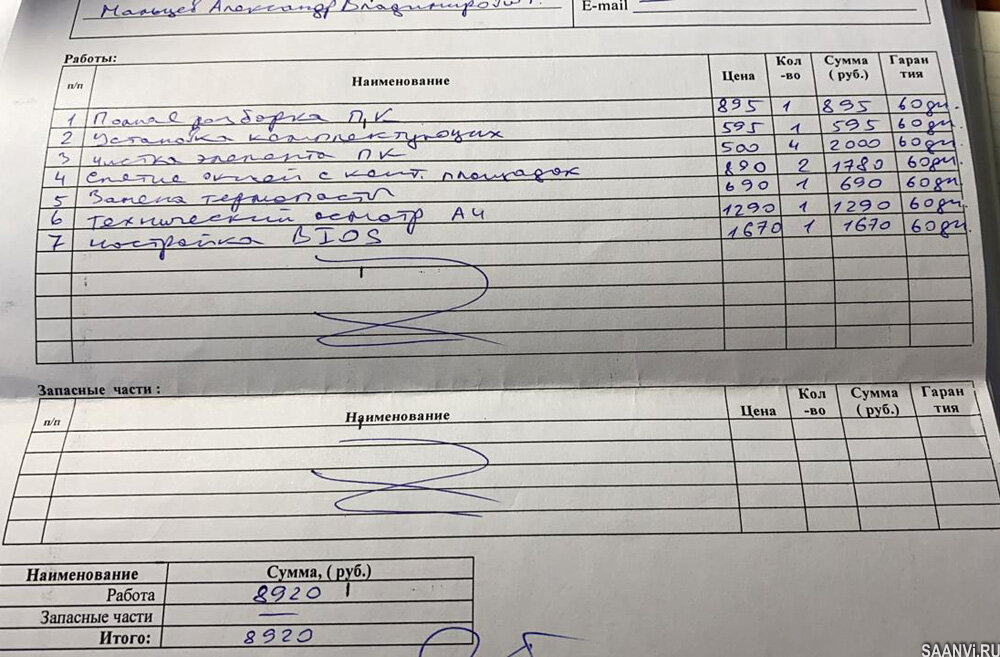 Мальцев Александр Владимирович
E-mail
Работы:
п/п Наименование Цена Кол-во Сумма (руб.) Гарантия
1 Полная разборка ПК 895 1 895 60дн.
2 Установка комплектующих 595 1 595 60дн.
3 Чистка элемента ПК 500 4 2000 60дн.
4 Снятие окисей с конт. площадок 890 2 1780 60дн.
5 Замена термопасты 690 1 690 60дн.
6 Технический осмотр АЧ 1290 1 1290 60дн.
7 Настройка BIOS 1670 1 1670 60дн.
Запасные части :
п/п Наименование Цена Кол-во Сумма (руб.) Гарантия
Наименование Сумма, (руб.)
Работа 8920
Запасные части —
Итого: 8920
SAANVI.RU